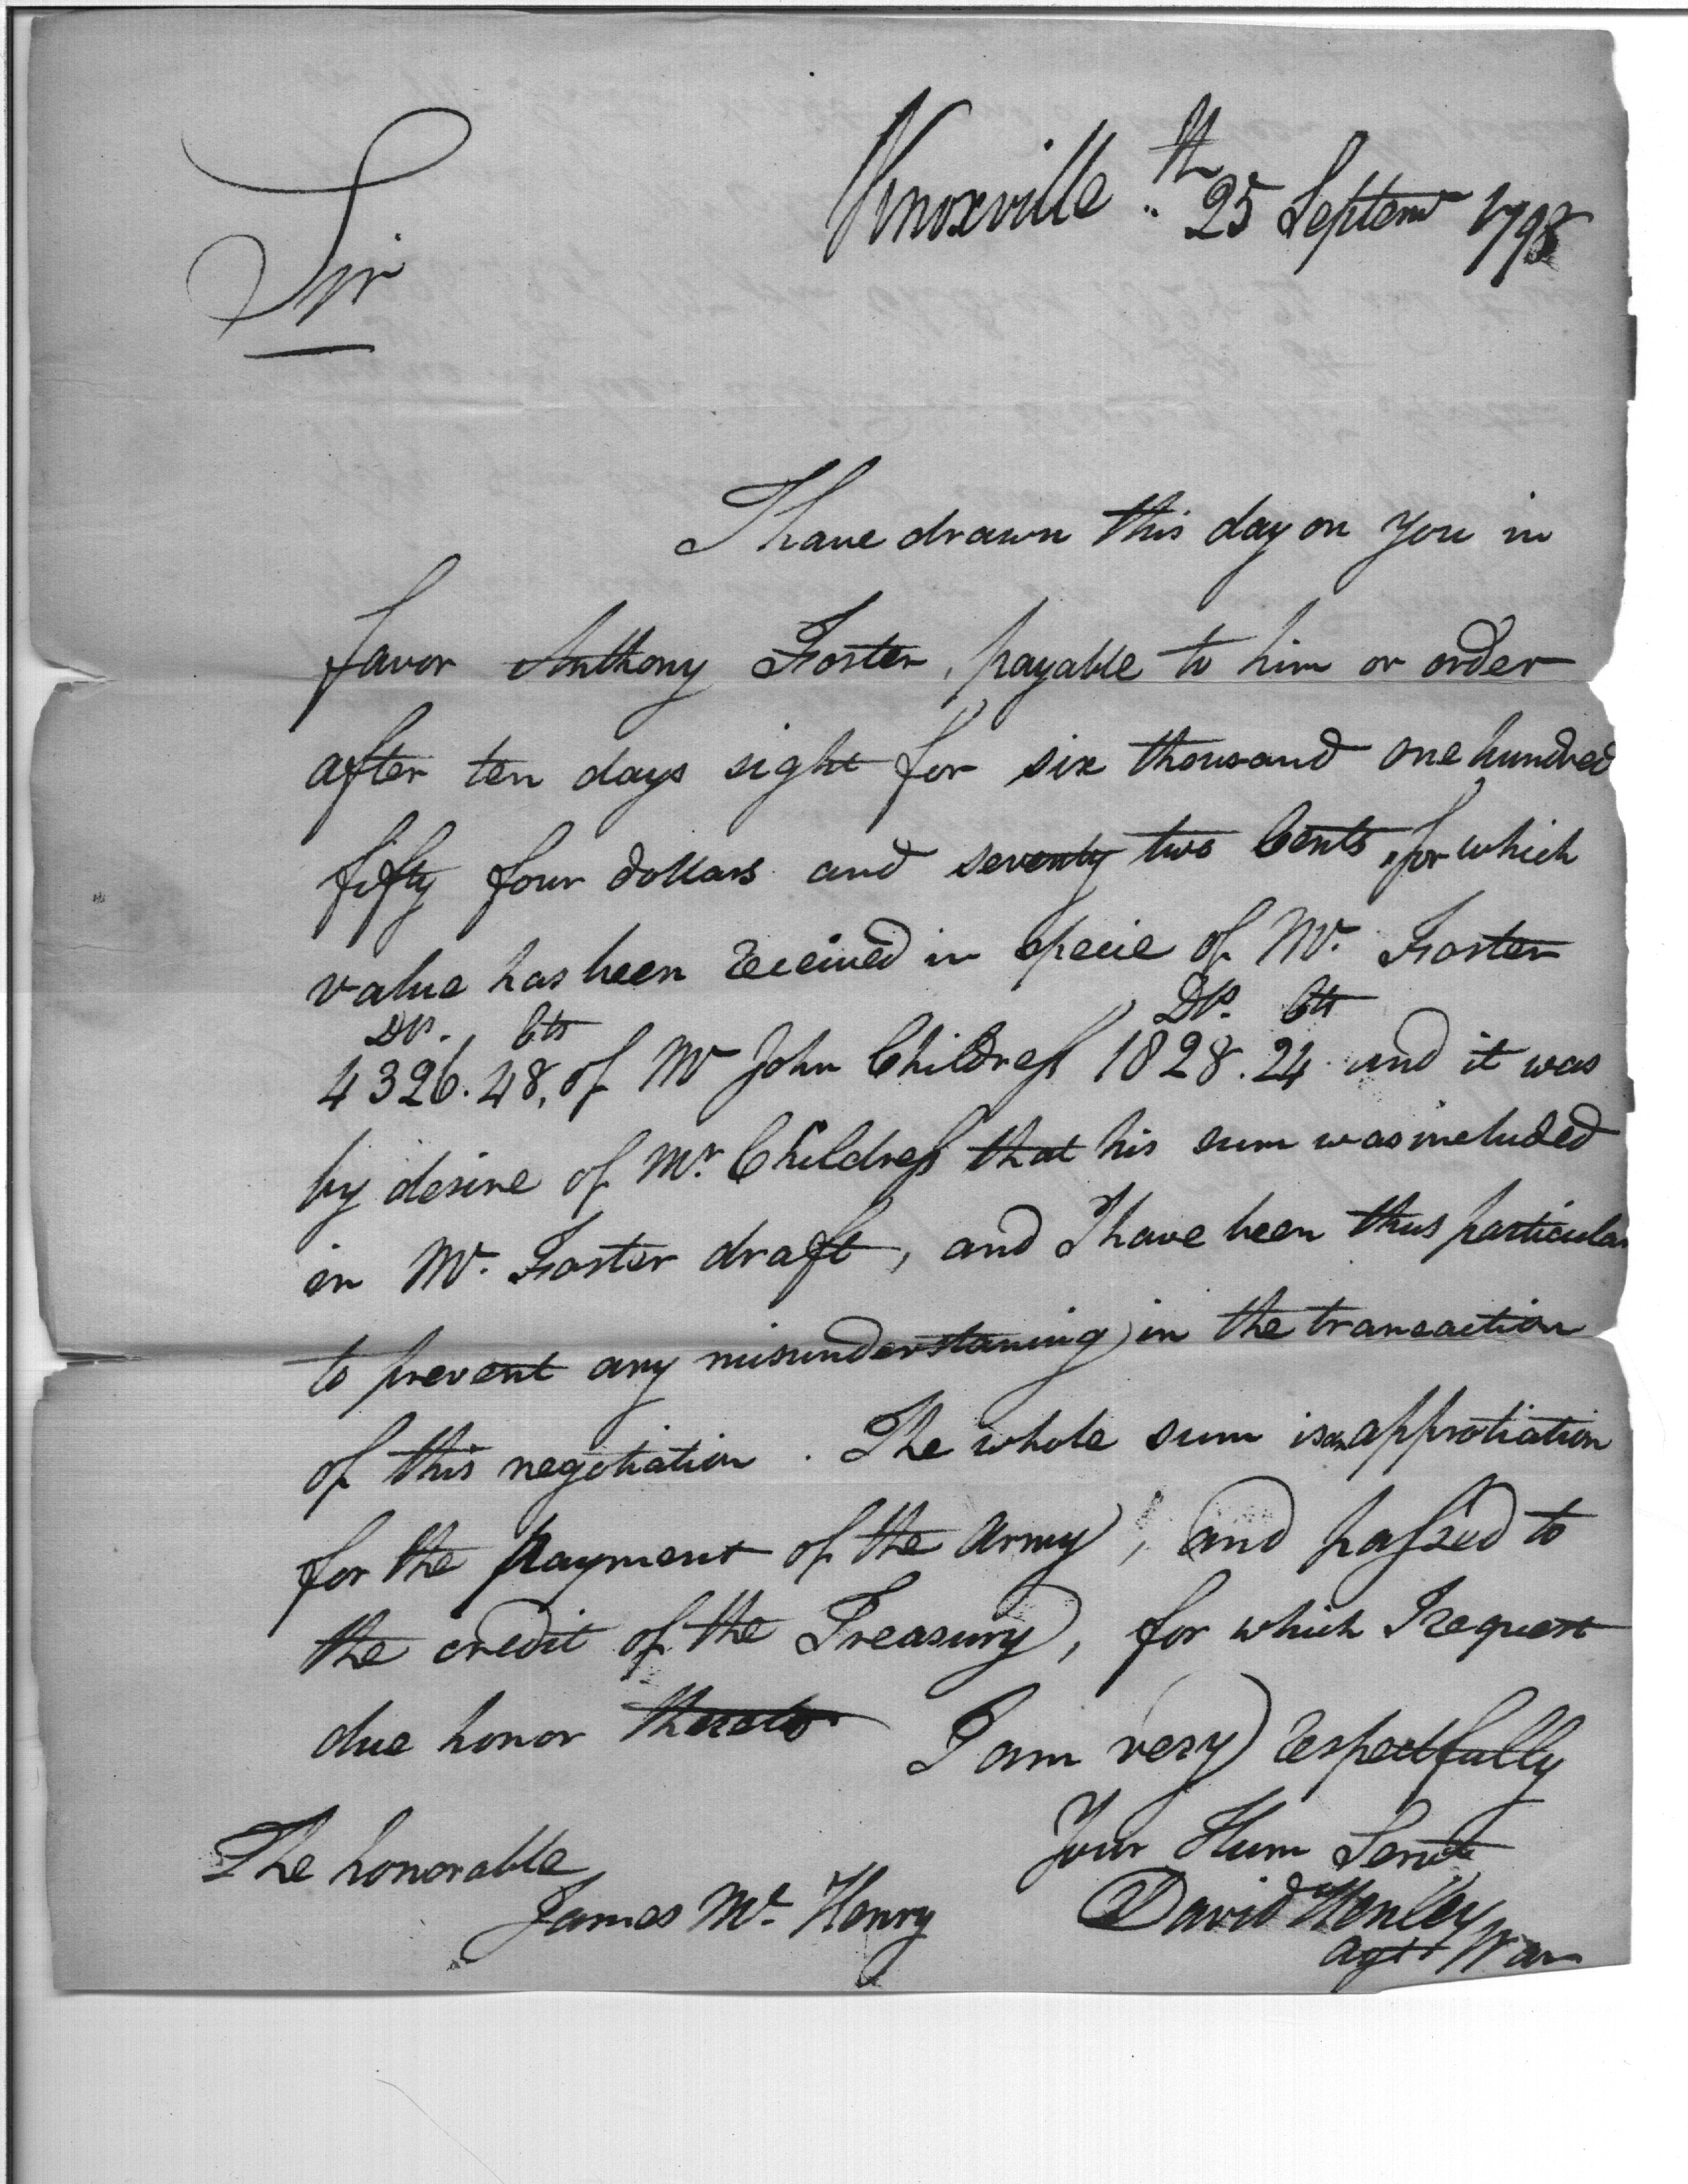 Knoxville 25th Septemr 1798
Sir
I have drawn this day on you in
favor Anthony Foster, payable to him or order
after ten days sight for six thousand one hundred
fifty four dollars and seventy two Cents, for which
value has been received in specie of Mr. Foster
Drs. Cts Drs. Cts
4326.48, of Mr John Childress 1828.24 and it was
by desire of Mr. Childress that his sum was included
in Mr. Foster draft, and I have been thus particular
to prevent any misunderstaning in the transaction
of this negotiation. The whole sum is an approtiation
for the payment of the army, and passed to
the credit of the Treasury, for which I request
due honor thereto
I am very respectfully
Your Hum Servt
David Henley
agt War
The honorable
James Mc. Henry